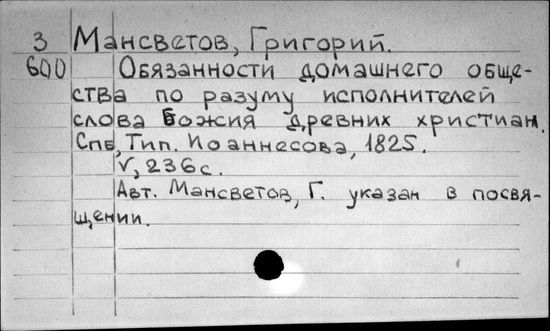 3 Мансветов, Григорий.
600 Обязанности домашнего обще-
ства по разуму исполнителей
слова Божия древних христиан.
Спб, Тип. Иоаннесова, 1825.
V, 236 с.
Авт. Мансветов, Г. указан в посвя-
щении.